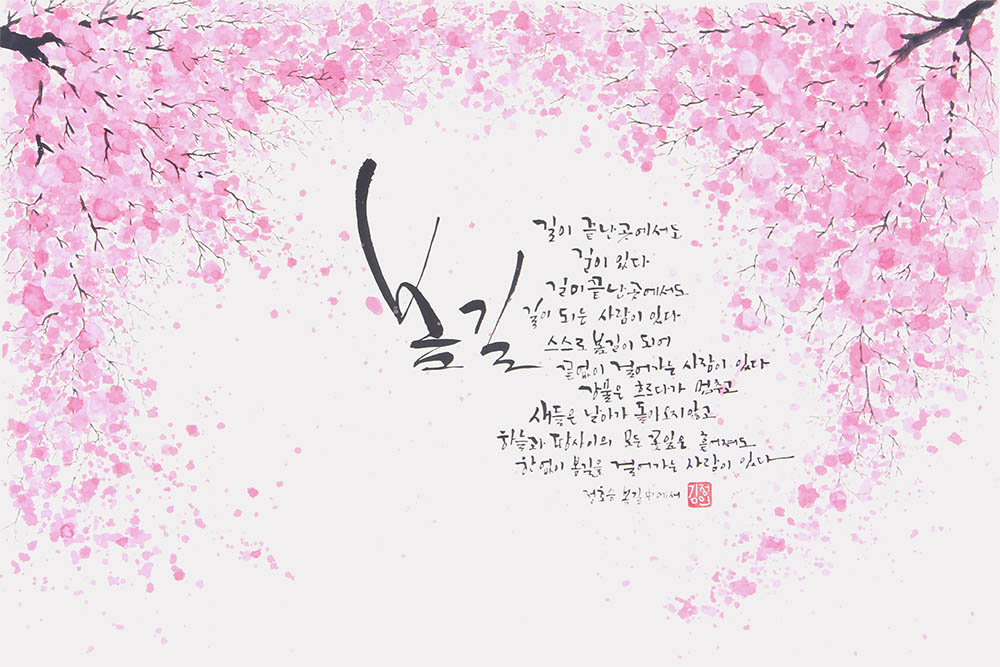 봄길
길이 끝난곳에서도
길이 있다
길이끝난곳에서도
길이 되는 사람이 있다
스스로 봄길이 되어
끝없이 걸어가는 사람이 있다
강물은 흐르다가 멈추고
새들은 날아가 돌아오지않고
하늘과 땅사이의 모든 꽃잎은 흩어져도
한없이 봄길을 걸어가는 사람이 있다
정호승 봄길 中에서